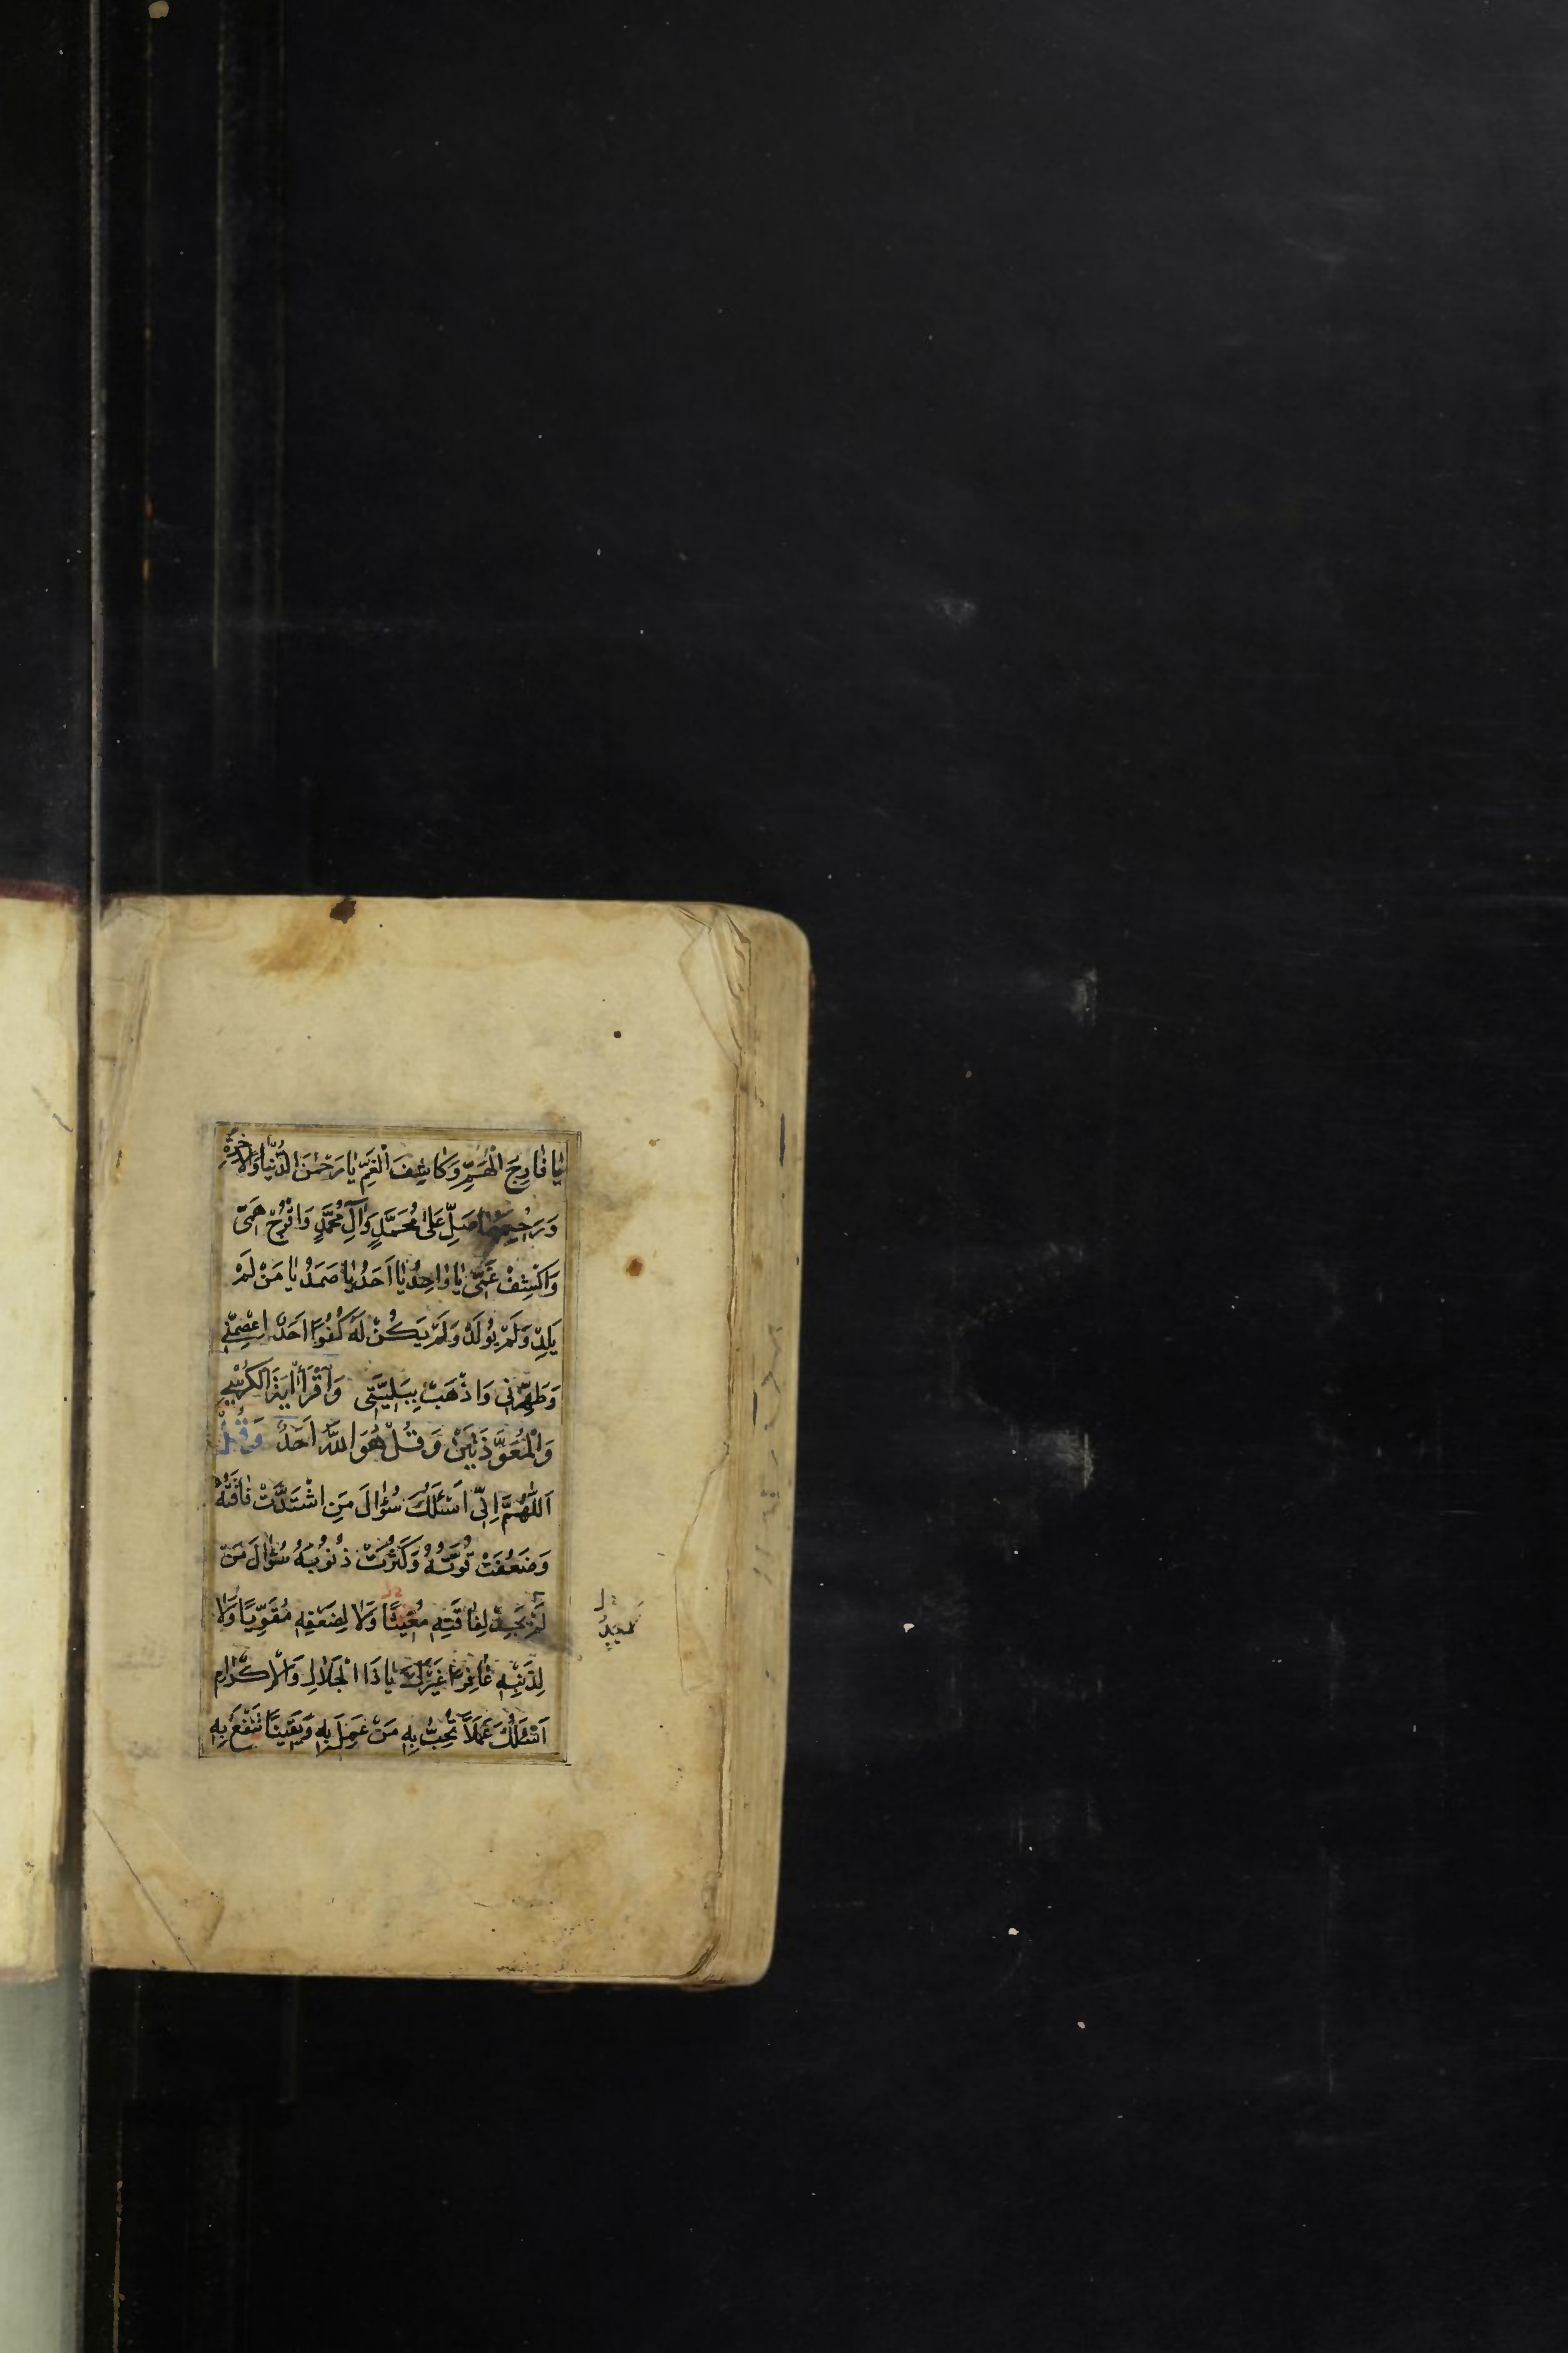 يَا فَارِجَ الْهَمِّ وَكَاشِفَ الْغَمِّ يَا رَحْمٰنَ الدُّنْيَا وَالْاٰخِرَةِ
وَرَحِيمَهُمَا صَلِّ عَلىٰ مُحَمَّدٍ وَاٰلِ مُحَمَّدٍ وَافْرُجْ هَمّى
وَاكْشِفْ غَمّى يَا وَاحِدُ يَا اَحَدُ يَا صَمَدُ يَا مَنْ لَمْ
يَلِدْ وَلَمْ يُولَدْ وَلَمْ يَكُنْ لَهُ كُفُوًا اَحَدٌ اِعْصِمْنِي
وَطَهِّرْنِي وَاذْهَبْ بِبَلِيَّتِى وَاقْرَأْ ايَةَ الْكُرْسِي
وَالْمُعَوَّذَتَيْنِ وَقُلْ هُوَ اللّٰهُ اَحَدٌ وَقُلْ
اَللّٰهُمَّ اِنِّي اَسْئَلُكَ سُؤٰالَ مَنِ اشْتَدَّتْ فَاقَتُهُ
وَضَعُفَتْ قُوَّتُهُ وَكَثُرَتْ ذُنُوبُهُ سُؤٰالَ مَنْ
لَمْ يَجِدْ لِفَاقَتِهِ مُغِيثًا وَلَا لِضَعْفِهِ مُقَوِّيًا وَلَا
لِذَنْبِهِ غَافِرًا غَيْرَكَ يَا ذَا الْجَلَالِ وَالْاِكْرَامِ
اَسْئَلُكَ عَمَلًا تُحِبُّ بِهِ مَنْ عَمِلَ بِهِ وَيَقِينًا تَنْفَعُ بِهِ